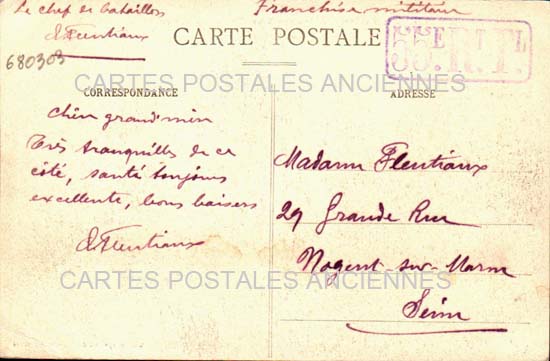 Le chef de bataillon
Fleutiaux
Franchise militaire
680303
CARTE POSTALE
55E R.I.T.
CARTES POSTALES ANCIENNES
CORRESPONDANCE
ADRESSE
Chère grand'mère
Très tranquilles de ce
côté, santé toujours
excellente, bons baisers
Fleutiaux
Madame Fleutiaux
29 Grande Rue
Nogent-sur-Marne
Seine
CARTES POSTALES ANCIENNES